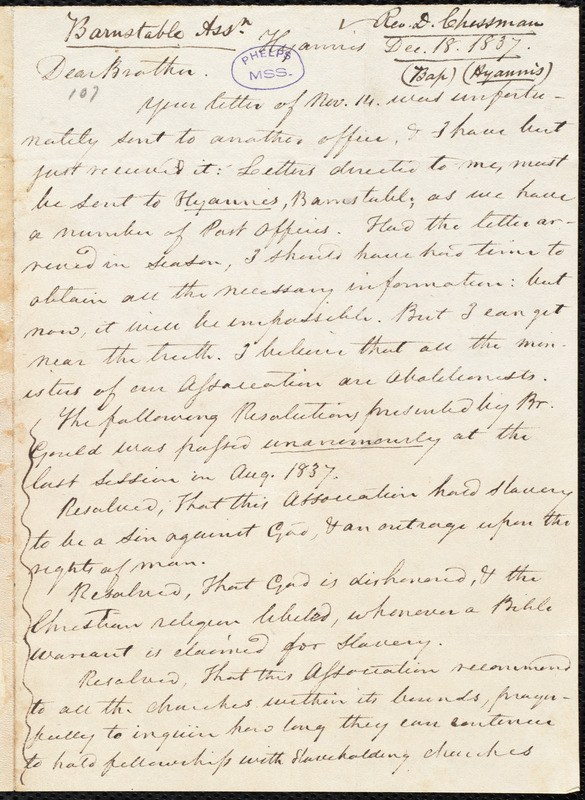 Barnstable Assn. ✓ Rev. D. Chessman
Hyannis Dec. 18. 1837.
(Bap) (Hyannis)
PHELPS
MSS.
Dear Brother.
107
Your letter of Nov. 14. was unfortu-
nately sent to another office, & I have but
just received it: Letters directed to me, must
be sent to Hyannis, Barnstable, as we have
a number of Post Offices. Had the letter ar-
rived in season, I should have had time to
obtain all the necessary information: but
now, it will be impossible. But I can get
near the truth. I believe that all the min-
isters of our Association are Abolitionists.
The following Resolutions, presented by Br.
Gould was passed unanimously at the
last session in Aug. 1837.
Resolved, That this Association hold slavery
to be a sin against God, & an outrage upon the
rights of man.
Resolved, That God is dishonored, & the
Christian religion libeled, whenever a Bible
warrant is claimed for slavery.
Resolved, That this Association recommend
to all the churches within its bounds, prayer-
fully to inquire how long they can continue
to hold fellowship with slaveholding churches